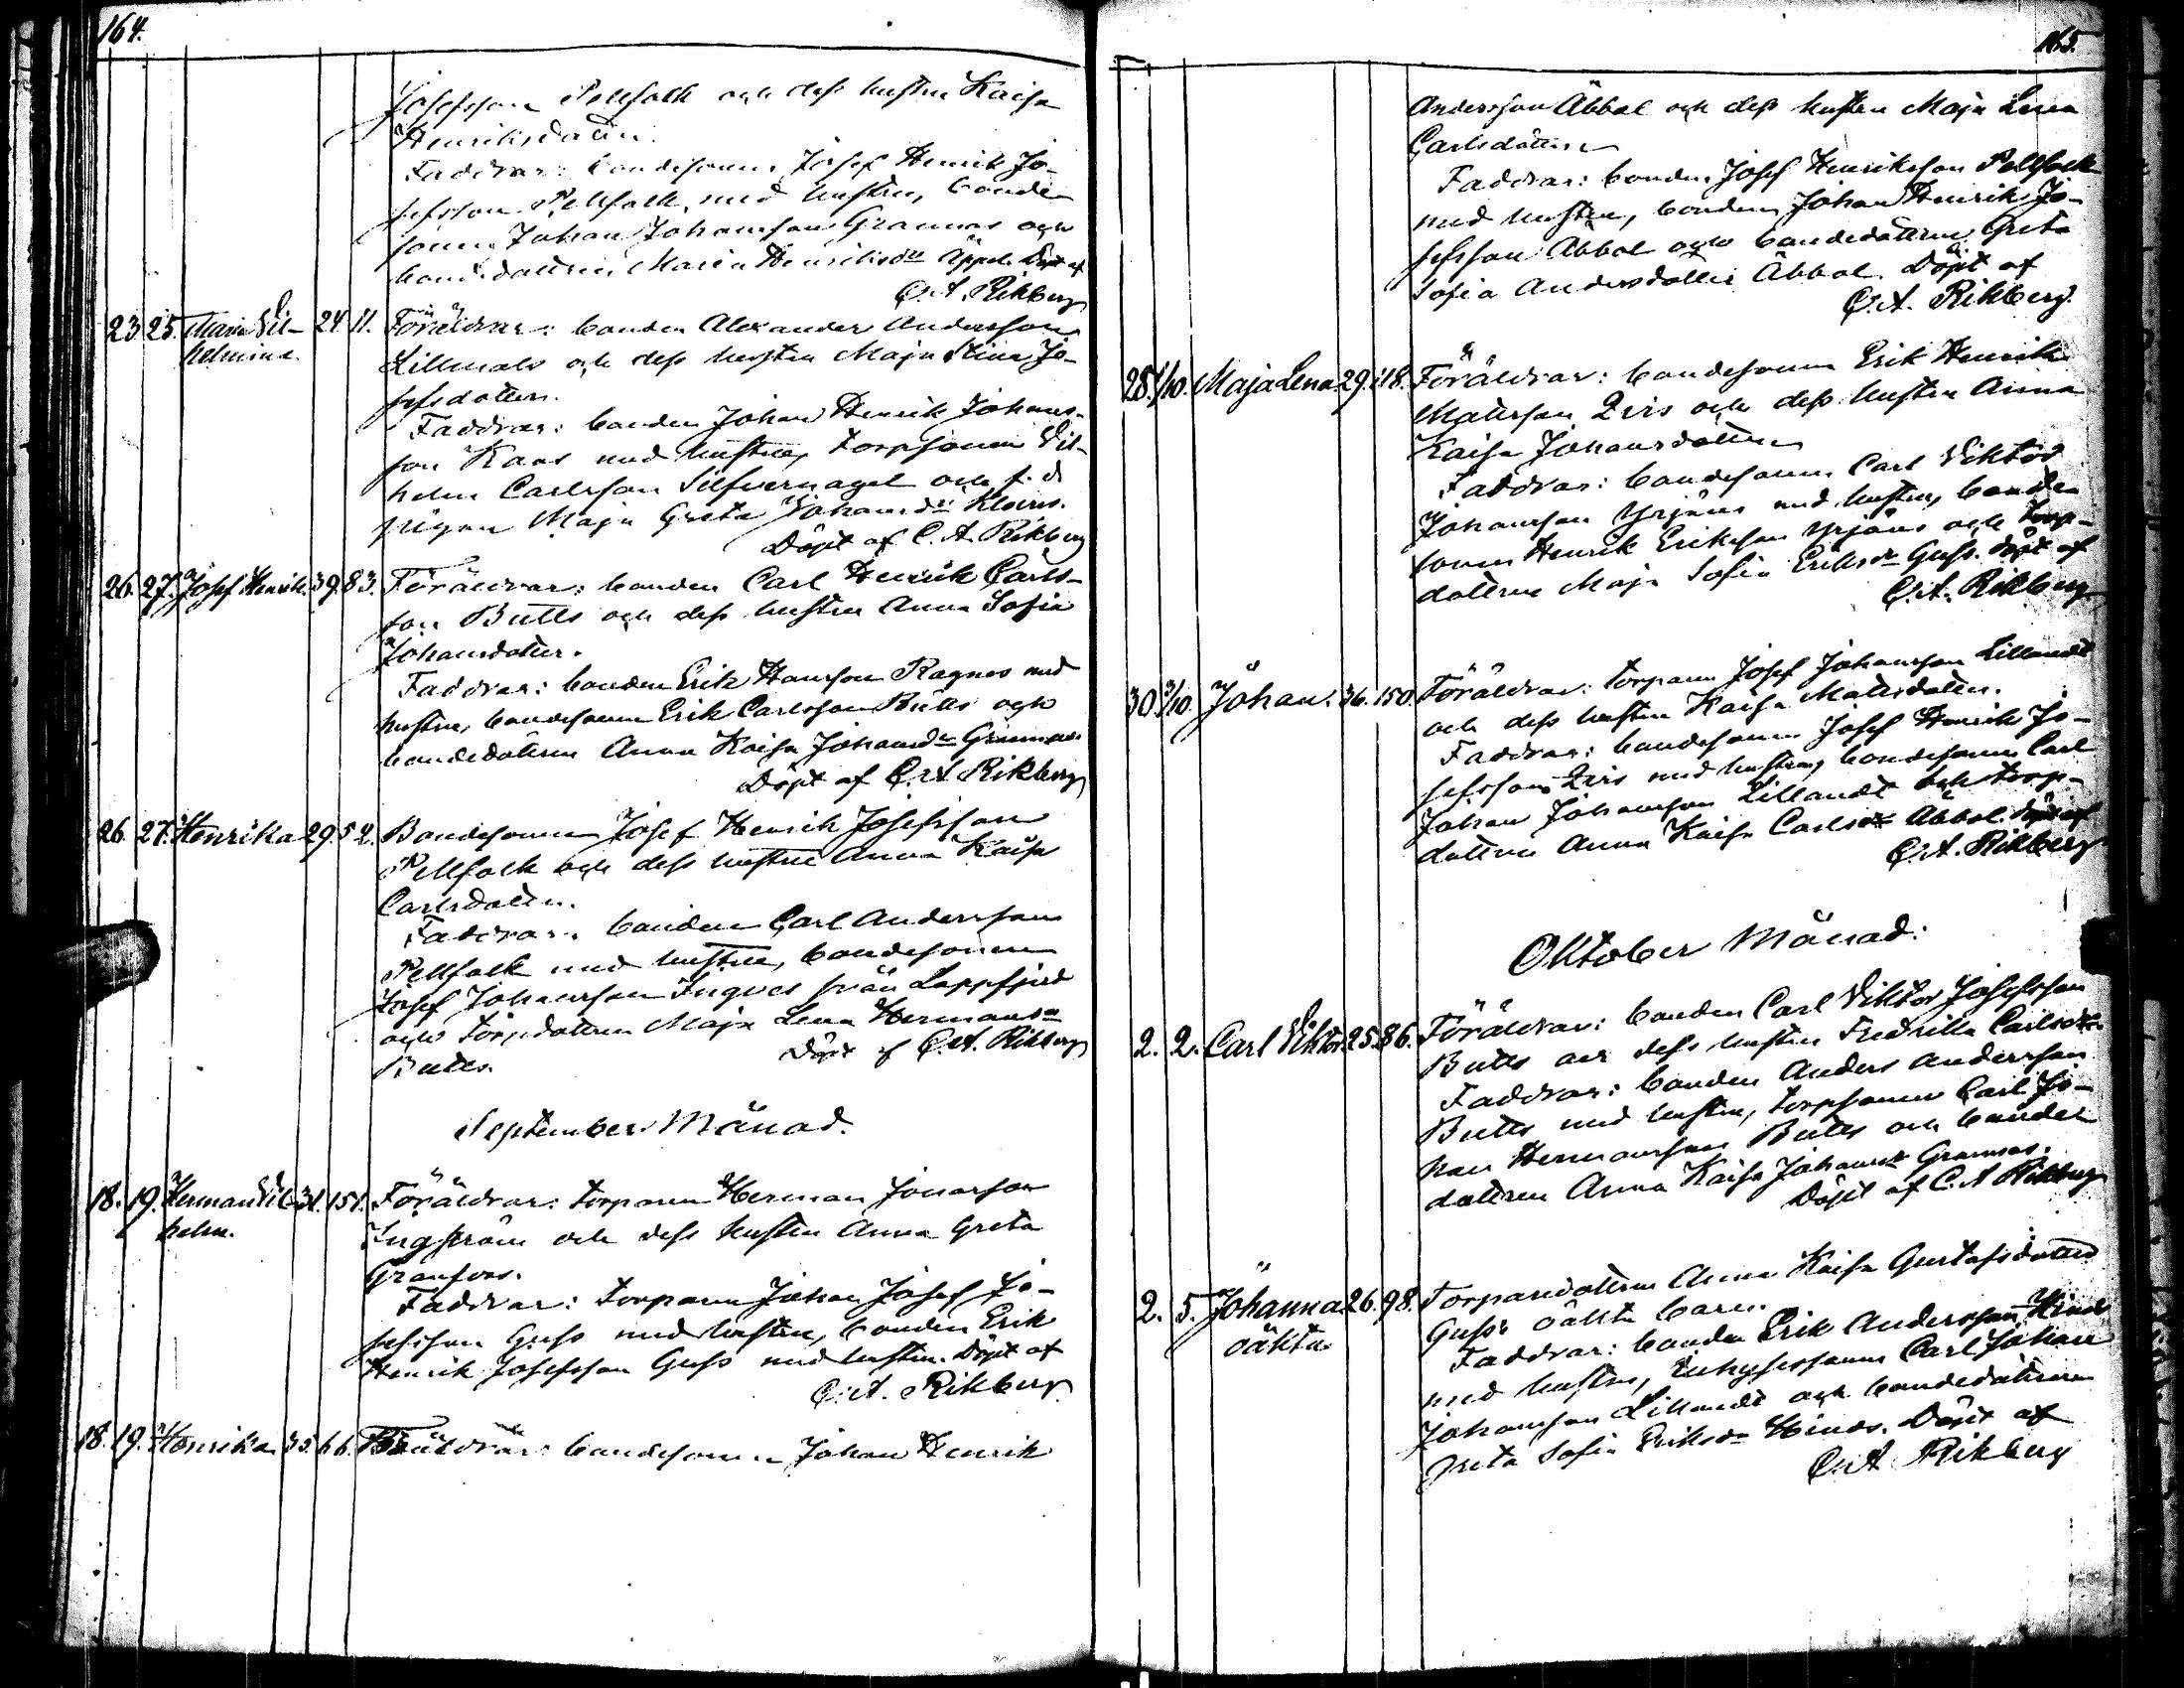 164.
Josefsson Pellfolk och dess hustru Kaisa
Henriksdotter.
Faddrar: bondesonen Josef Henrik Jo-
sefsson Pellfolk med hustru, bonde
sonen Johan Johansson Grannas och
bondedottren Maria Henriksdr Äppel. Döpt af
C. A. Rikberg
23. 25. Maria Vil- 24. 11. Föräldrar: bonden Alexander Andersson
helmina. Lillmals och dess hustru Maja Stina Jo-
sefsdotter.
Faddrar: bonden Johan Henrik Johans-
son Kaas med hustru, torpsonen Vil-
helm Carlsson Silfvernagel och f. d.
pigan Maja Greta Johansdr Kloins.
Döpt af C. A. Rikberg
26. 27. Josef Henrik. 39. 83. Föräldrar: bonden Carl Henrik Carls-
son Butts och dess hustru Anna Sofia
Johansdotter.
Faddrar: bonden Erik Hansson Ragnos med
hustru, bondesonen Erik Carlsson Butts och
bondedottren Anna Kaisa Johansdr Grannas.
Döpt af C. A. Rikberg
26. 27. Henrika 29. 52. Bondesonen Josef Henrik Josefsson
Pellfolk och dess hustru Anna Kaisa
Carlsdotter.
Faddrar: bonden Carl Andersson
Pellfolk med hustru, bondesonen
Josef Johansson Ingves från Lappfjerd
och torpdottren Maja Lena Hermansdr
Butts. Döpt af C. A. Rikberg
September Månad.
18. 19. Herman Vil- 31. 151. Föräldrar: torparen Herman Jonasson
helm. Ingström och dess hustru Anna Greta
Granfors.
Faddrar: torparen Johan Josef Jo-
sefsson Guss med hustru, bonden Erik
Henrik Josefsson Guss med hustru. Döpt af
C. A. Rikberg.
18. 19. Henrika 35. 66. Föräldrar: bondesonen Johan Henrik
165.
Andersson Åbbal och dess hustru Maja Lena
Carlsdotter
Faddrar: bonden Josef Henriksson Pellfolk
med hustru, bonden Johan Henrik Jo-
sefsson Åbbal och bondedottren Greta
Sofia Andersdotter Åbbal. Döpt af
C. A. Rikberg.
28. 1/10. Maja Lena 29. 118. Föräldrar: bondesonen Erik Henrik
Mattsson Qvis och dess hustru Anna
Kaisa Johansdotter
Faddrar: bondesonen Carl Viktor
Johansson Yrjäns med hustru, bonde-
sonen Henrik Eriksson Yrjäns och torp-
dottren Maja Sofia Eriksdr Guss. Döpt af
C. A. Rikberg
30. 3/10. Johan. 36. 150. Föräldrar: torparen Josef Johansson Lillandt
och dess hustru Kaisa Mattsdotter.
Faddrar: bondesonen Josef Henrik Jo-
sefsson Qvis med hustru, bondesonen Carl
Johan Johansson Lillandt och torp-
dottren Anna Kaisa Carlsdr Åbbal. Döpt af
C. A. Rikberg
Oktober Månad:
2. 2. Carl Viktor. 25. 86. Föräldrar: bonden Carl Viktor Josefsson
Butts och dess hustru Fredrika Carlsdtr
Faddrar: bonden Anders Andersson
Butts med hustru, torpsonen Carl Jo-
han Hermansson Butts och bonde
dottren Anna Kaisa Johansdr Grannas.
Döpt af C. A. Rikberg
2. 5. Johanna 26. 98. Torparedottren Anna Kaisa Gustafsdotter
oäkta. Guss's oäkta barn.
Faddrar: bonden Erik Andersson Hinds
med hustru, Inhysessonen Carl Johan
Johansson Lillandt och bondedottren
Greta Sofia Eriksdr Hinds. Döpt af
C. A. Rikberg